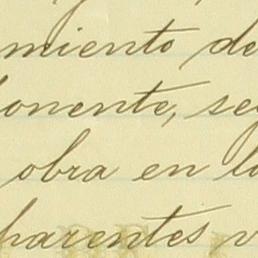 miento de
onente, se
obra en l
parentes v